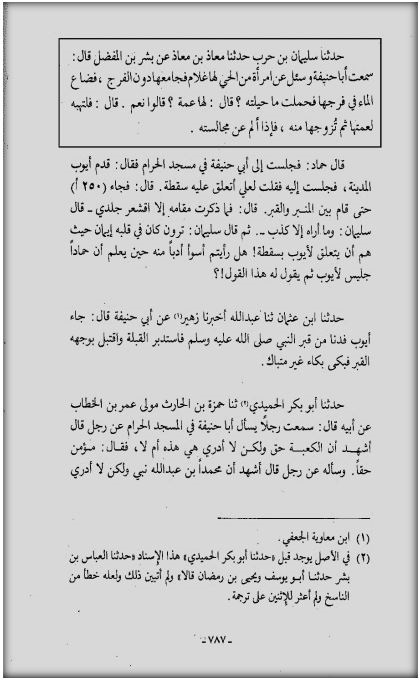 حدثنا سليمان بن حرب حدثنا معاذ بن معاذ عن بشر بن المفضل قال :
سمعت أبا حنيفة وسئل عن امرأة من الحي لها غلام فجامعها دون الفرج ، فضاع
الماء في فرجها فحملت ما حيلته ؟ قال : لها عمة ؟ قالوا نعم . قال : فلتهبه
لعمتها ثم تُزوجها منه ، فإذا ألم عن مجالسته .
قال حماد: فجلست إلى أبي حنيفة في مسجد الحرام فقال: قدم أيوب
المدينة، فجلست إليه فقلت لعلي أتعلق عليه سقطة. قال: فجاء (٢٥٠ أ)
حتى قام بين المنبر والقبر. قال: فما ذكرت مقامه إلا اقشعر جلدي ـ قال
سليمان: وما أراه إلا كذب ـ. ثم قال سليمان: ترون كان في قلبه إيمان حيث
هم أن يتعلق لأيوب بسقطة! هل رأيتم أسوأ أدباً منه حين يعلم أن حماداً
جليس لأيوب ثم يقول له هذا القول!؟
حدثنا ابن عثمان ثنا عبدالله أخبرنا زهير(١) عن أبي حنيفة قال: جاء
أيوب فدنا من قبر النبي صلى الله عليه وسلم فاستدبر القبلة واقتبل بوجهه
القبر فبكى بكاء غير متباك.
حدثنا أبو بكر الحميدي(٢) ثنا حمزة بن الحارث مولى عمر بن الخطاب
عن أبيه قال: سمعت رجلاً يسأل أبا حنيفة في المسجد الحرام عن رجل قال
أشهد أن الكعبة حق ولكن لا أدري هي هذه أم لا، فقال: مؤمن
حقاً. وسأله عن رجل قال أشهد أن محمداً بن عبدالله نبي ولكن لا أدري
(١) ابن معاوية الجعفي.
(٢) في الأصل يوجد قبل «حدثنا أبو بكر الحميدي» هذا الإسناد «حدثنا العباس بن
بشر حدثنا أبو يوسف ويحيى بن رمضان قالا» ولم أتبين ذلك ولعله خطأ من
الناسخ ولم أعثر للإثنين على ترجمة.
ـ ٧٨٧ ـ